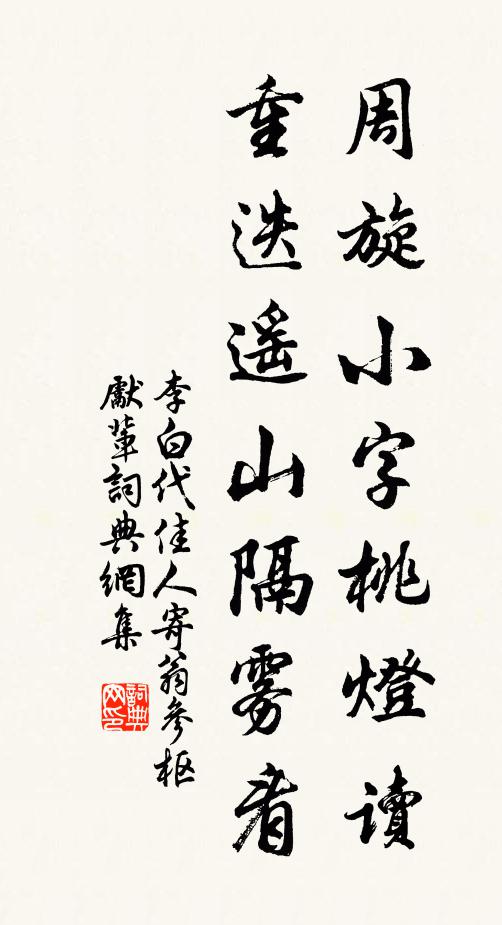 周旋小字桃燈讀
重迭遥山隔雾看
李白代佳人寄翁參枢
獻輩詞典網集
詞典
网印